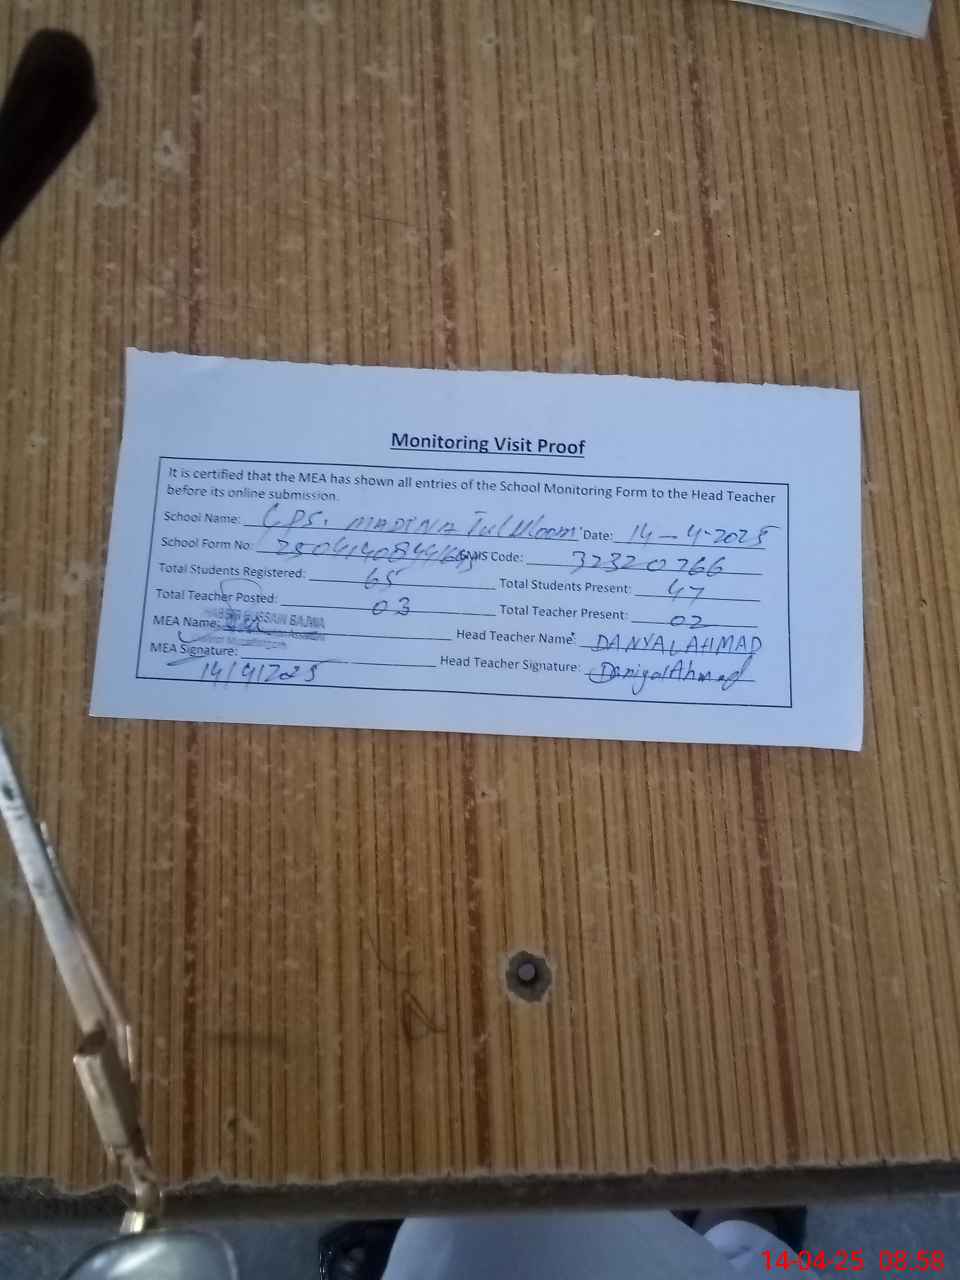 Monitoring Visit Proof
It is certified that the MEA has shown all entries of the School Monitoring Form to the Head Teacher
before its online submission.
School Name: GPS. MADINA Tul Uloom Date: 14-4-2025
School Form No: EMIS Code: 32320266
Total Students Registered: 65 Total Students Present: 47
Total Teacher Posted: 03 Total Teacher Present: 02
MEA Name: HUSSAIN BAJWA Head Teacher Name: DANYAL AHMAD
MEA Signature: Head Teacher Signature: Daniyal Ahmad
14/4/2025
14-04-25 08.58